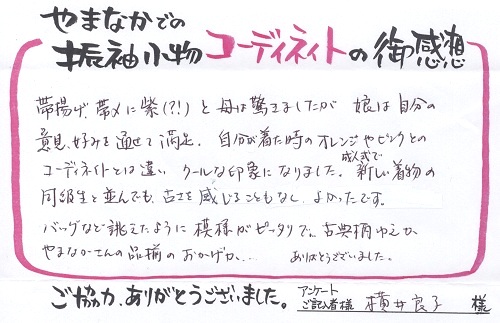 やまなかでの
振袖小物コーディネイトの御感想
帯揚げ、帯〆に紫(?!)と母は驚きましたが 娘は自分の
意見、好みを通せて満足。自分が着た時のオレンジやピンクとの
コーディネイトとは違い クールな印象になりました。成人式で新しい着物の
同級生と並んでも、古さを感じることもなし、よかったです。
バッグなど誂えたように模様がピッタリで。古典柄ゆえか
やまなかさんの品揃のおかげか、… ありがとうございました。
ご協力、ありがとうございました。アンケートご記入者様 横井良子 様